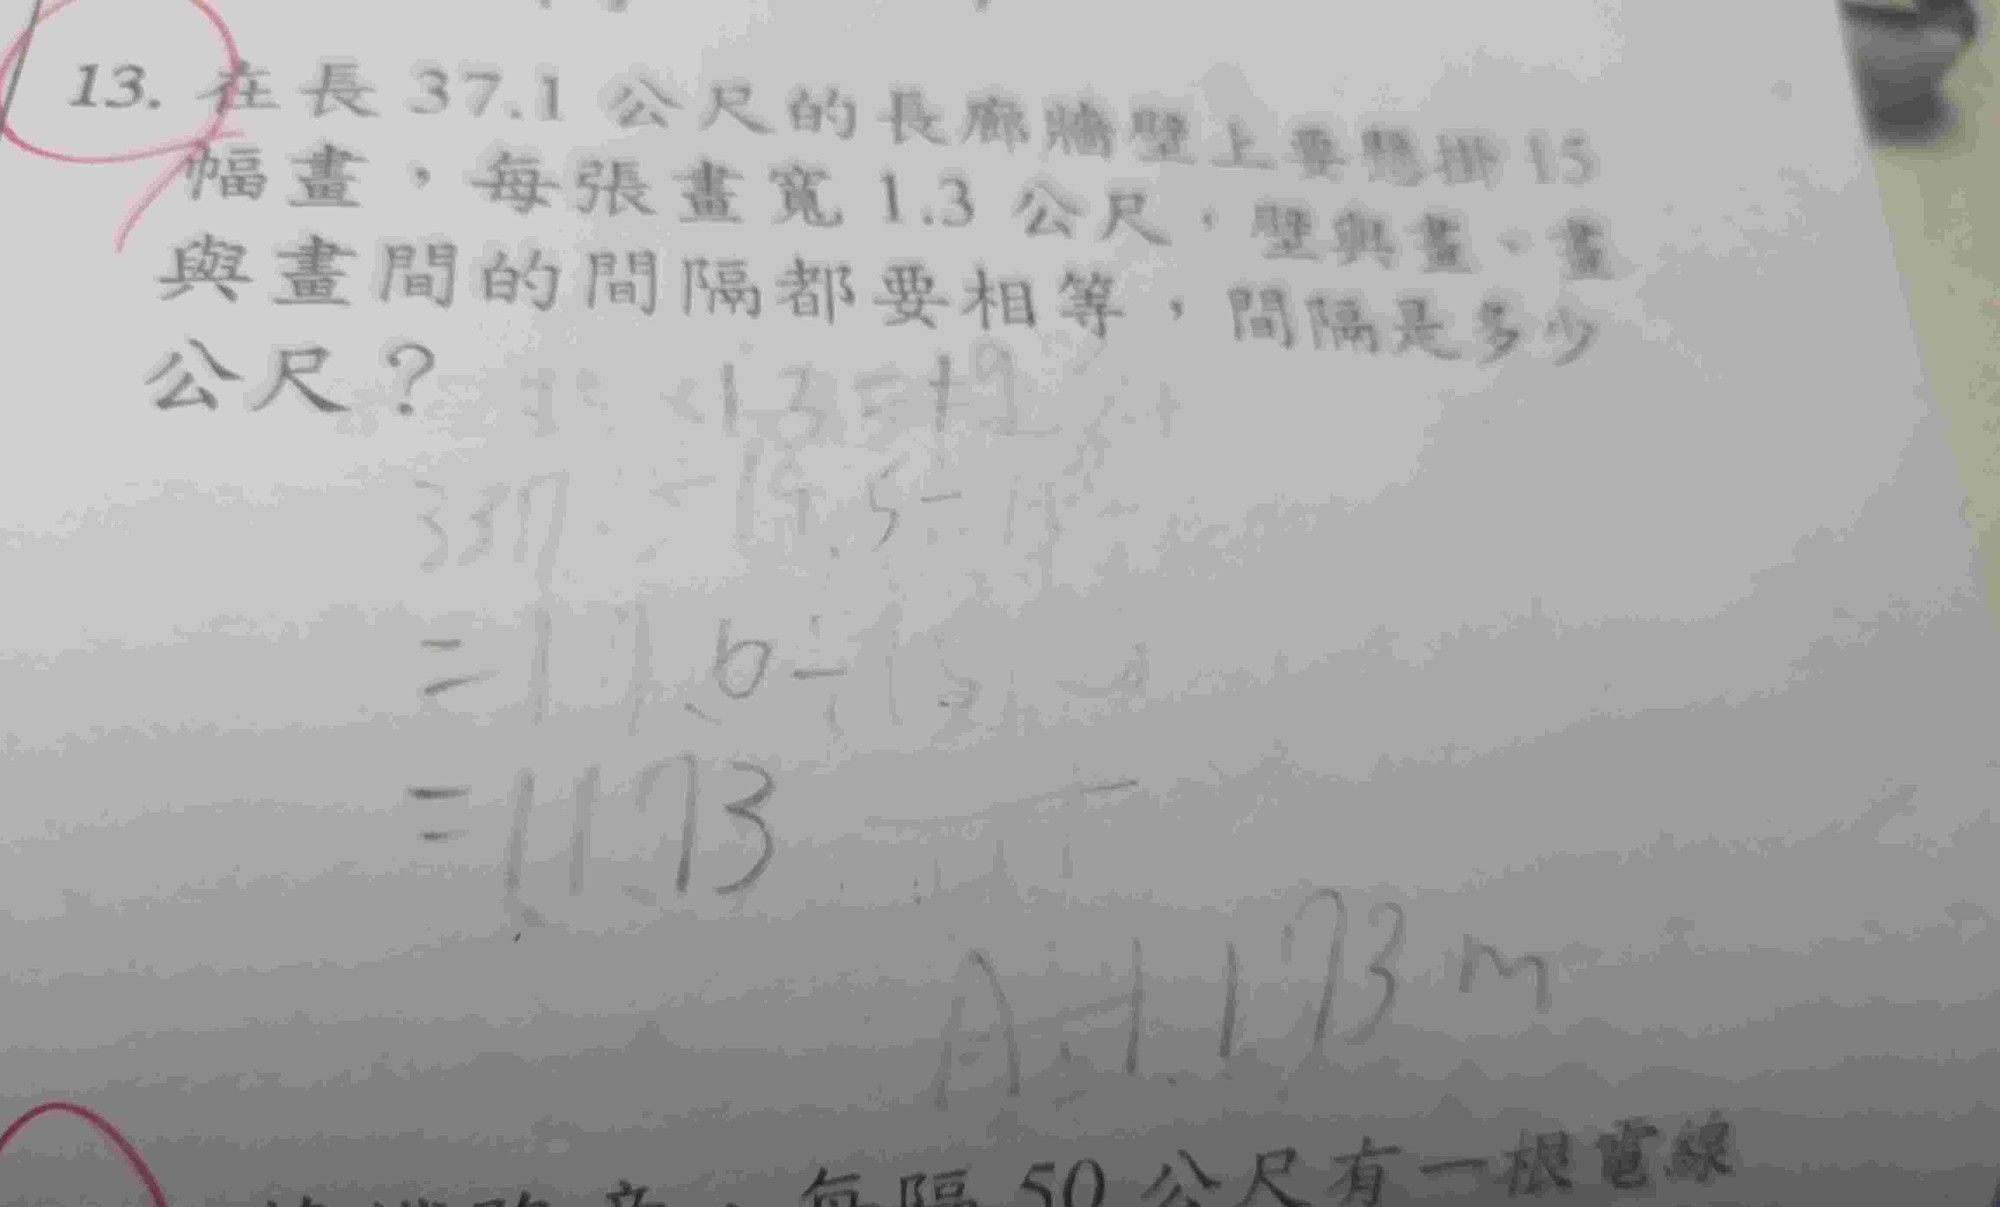 13. 在長 37.1 公尺的長廊牆壁上要懸掛 15
幅畫，每張畫寬 1.3 公尺，壁與畫、畫
與畫間的間隔都要相等，間隔是多少
公尺？
1.3=19
19.5=
=17.6÷15
=1.173
A:1.173m
每隔 50 公尺有一根電線